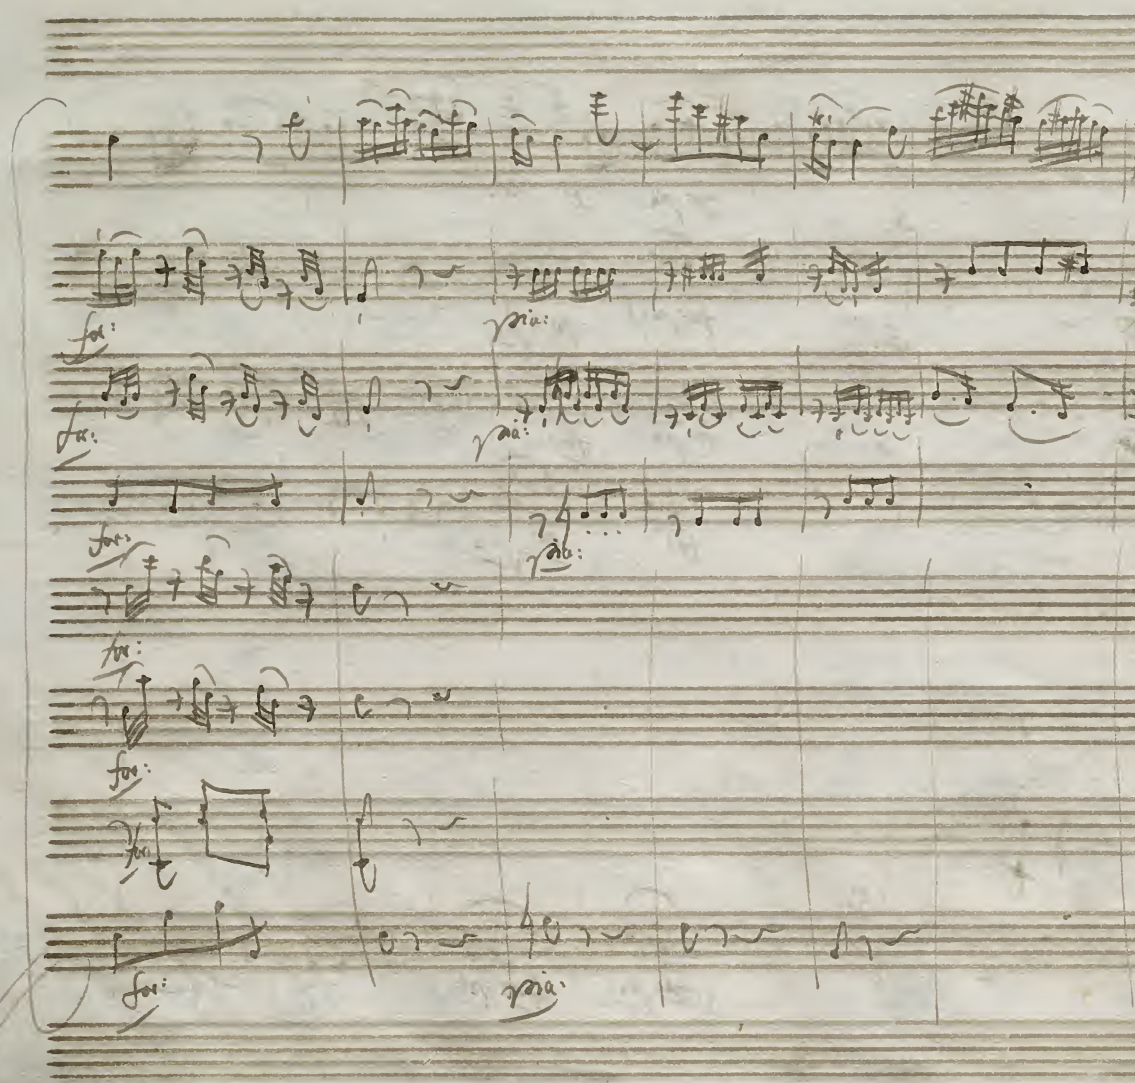 for: pia:
for: pia:
for: pia:
for:
for:
for:
for: pia: